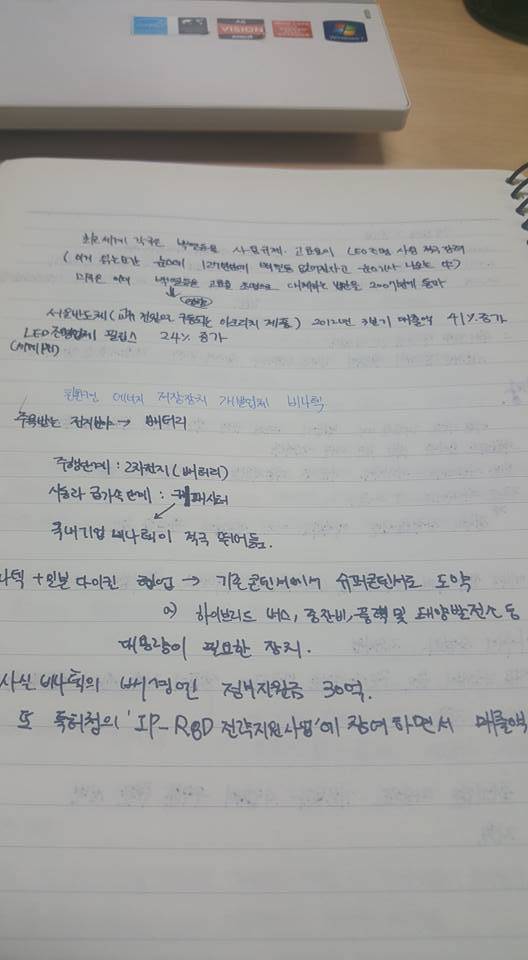 VISION
AMD
Windows 7
최근 세계 각국은 백열등을 사용규제. 고효율의 LED조명 사용 적극 장려
없어진다고 뉴스기사 나오는 中)
백열등을 고효율 조명으로 대체하는 법안을 2007년에 통과
서울반도체(교류 전원으로 구동되는 아크리치 제품) 2012년 3분기 매출액 41% 증가
LED조명업체 필립스 24% 증가
친환경 에너지 저장장치 개발업체 비나텍
주목받는 전지분야 → 배터리
주행단계 : 2차전지(배터리)
시동과 급가속 단계 : 캐패시터
국내기업 비나텍이 적극 뛰어듦.
나텍 + 일본 다이킨 협업 → 기존 콘덴서에서 슈퍼콘덴서로 도약
예) 하이브리드 버스, 중장비, 풍력 및 태양발전소 등
대용량이 필요한 장치.
사실 비나텍의 배경엔 정부지원금 30억.
또 특허청의 'IP-R&D 전략지원사업'에 참여하면서 매출액